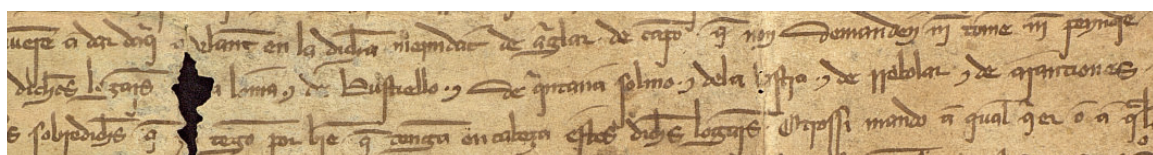 uiere a dar daqi a delant en la dicha meyndat de aglar de capo q non demanden ni tome ni peyndre
dichos logars la loma y de bustiello y de qintana solmo y dela y de rrebolar y de arantiones
s sobredichos q tego por bie q tenga en cabeça estos dichos logares Otrossi mando a qual qer o a ql